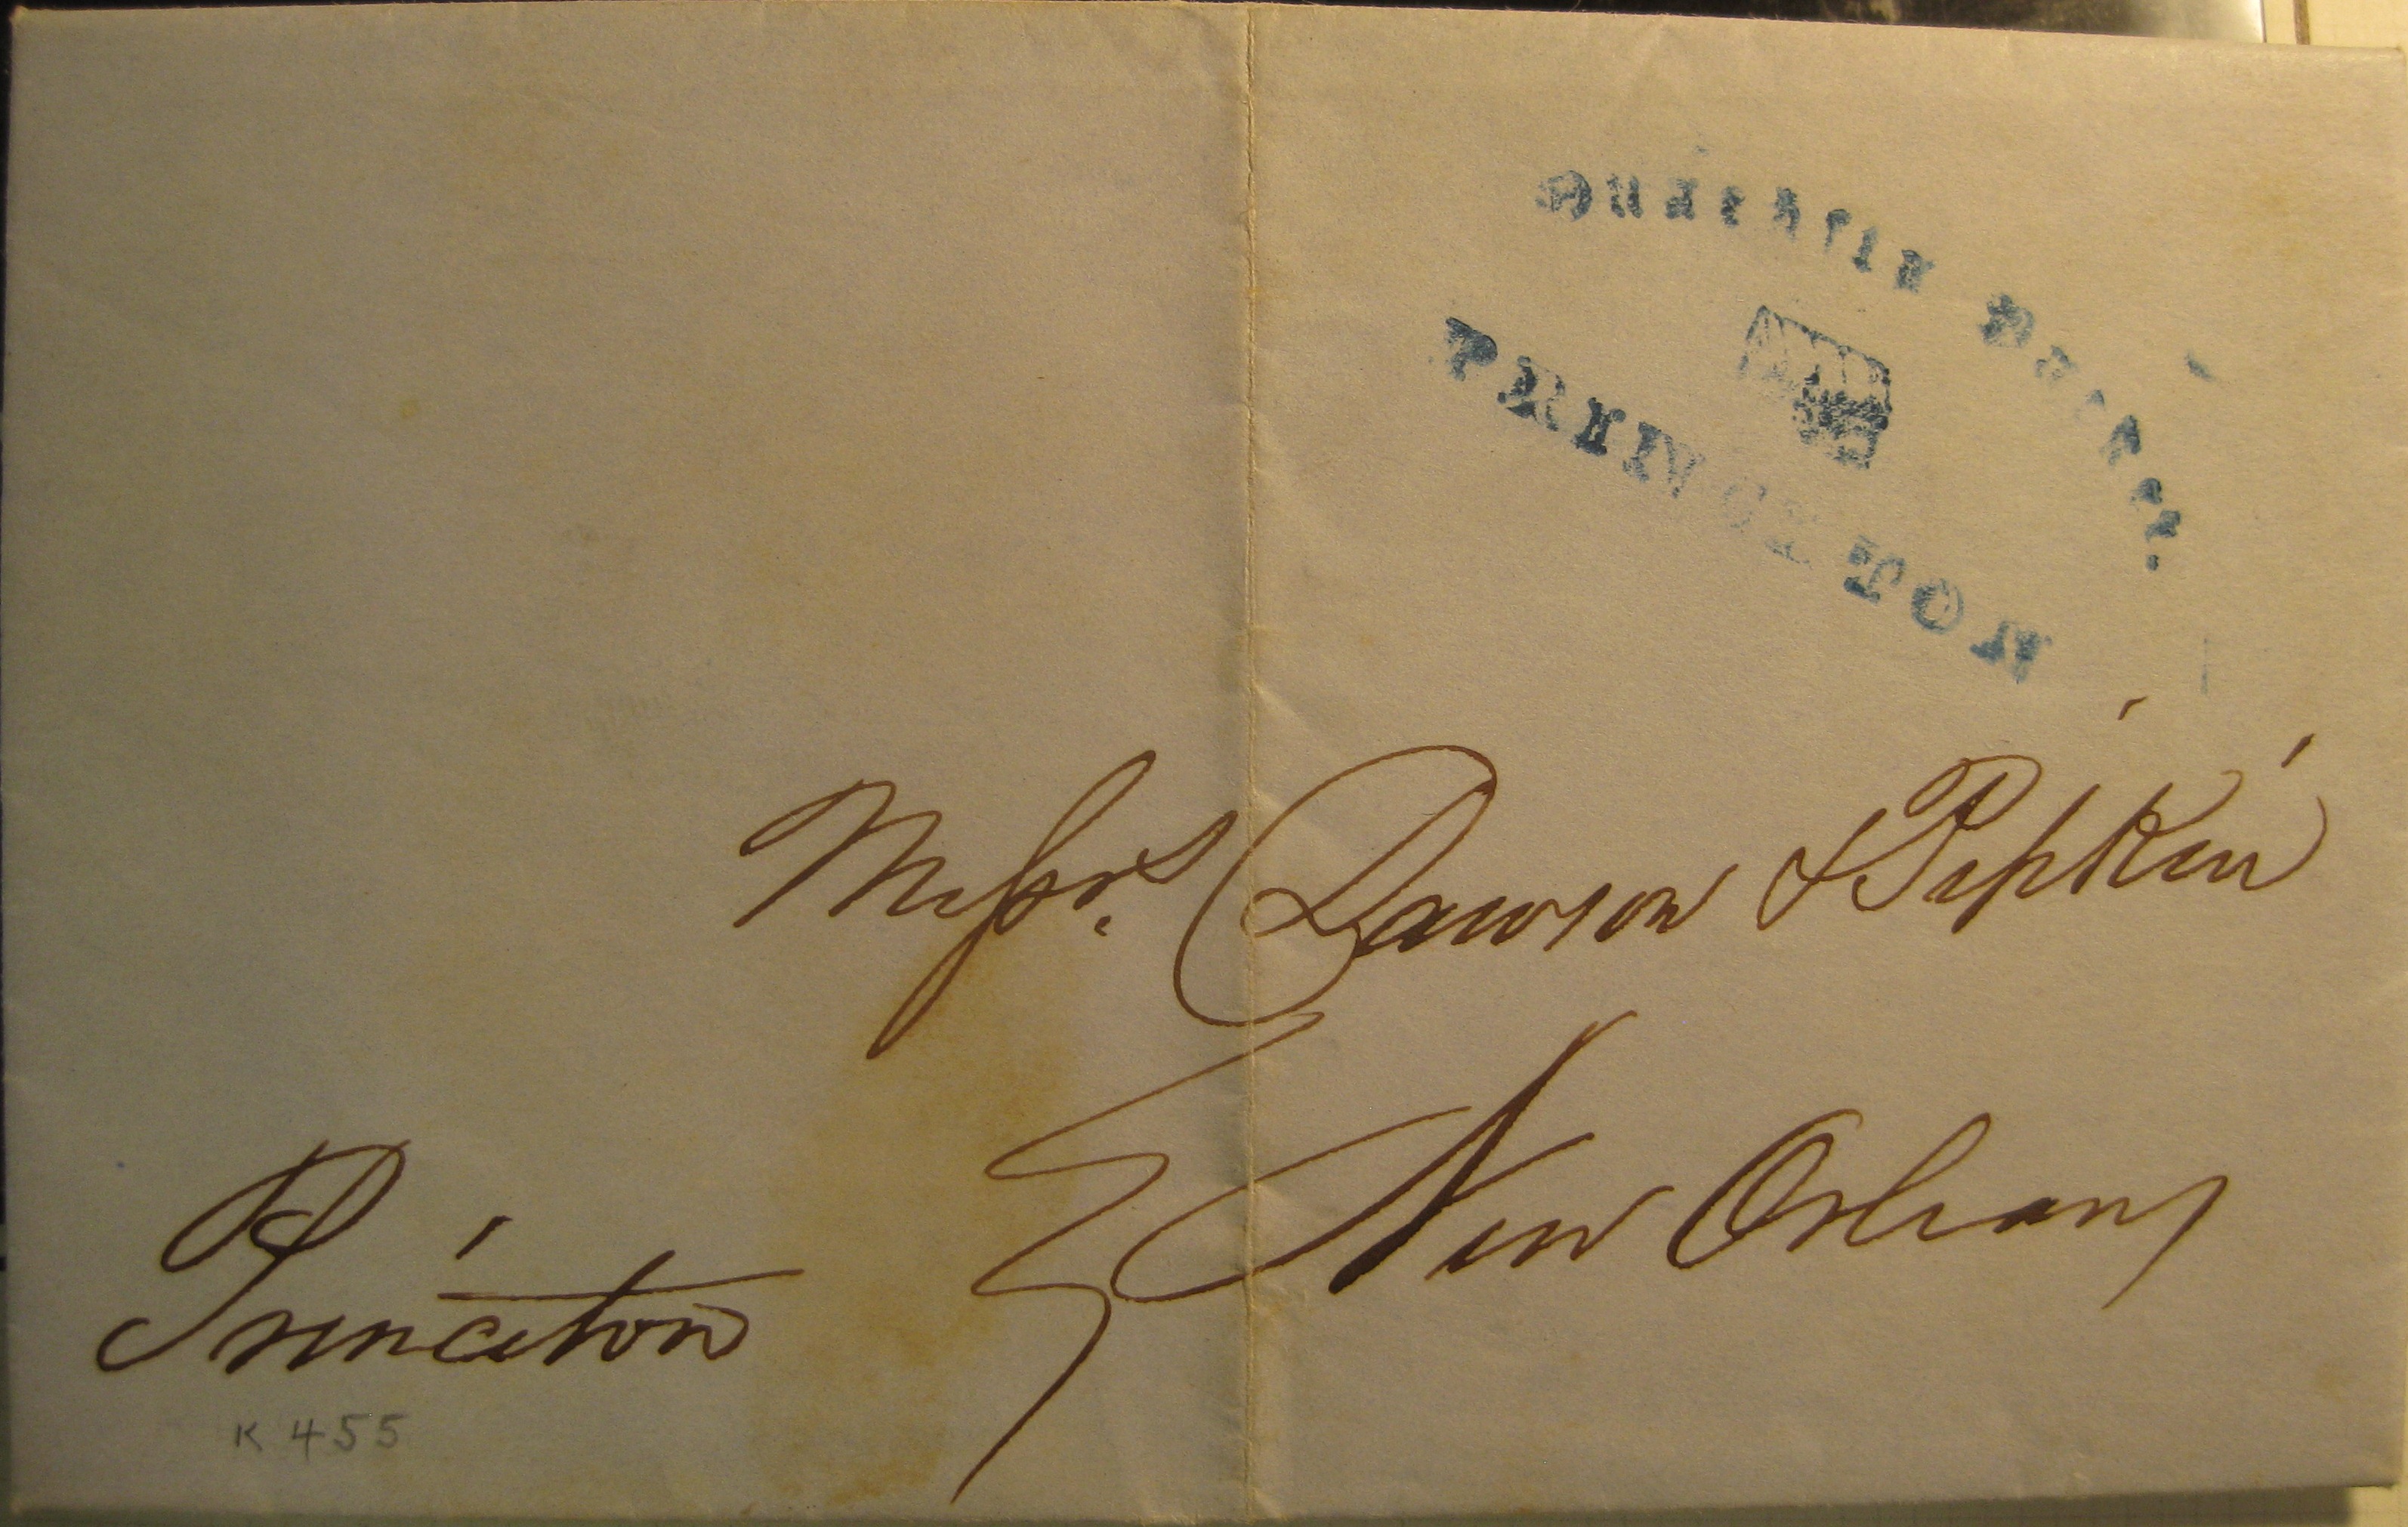 Ouachita Packet.
PRINCETON
Messrs. Dawson & Pipkin
New Orleans
Princeton
K 455